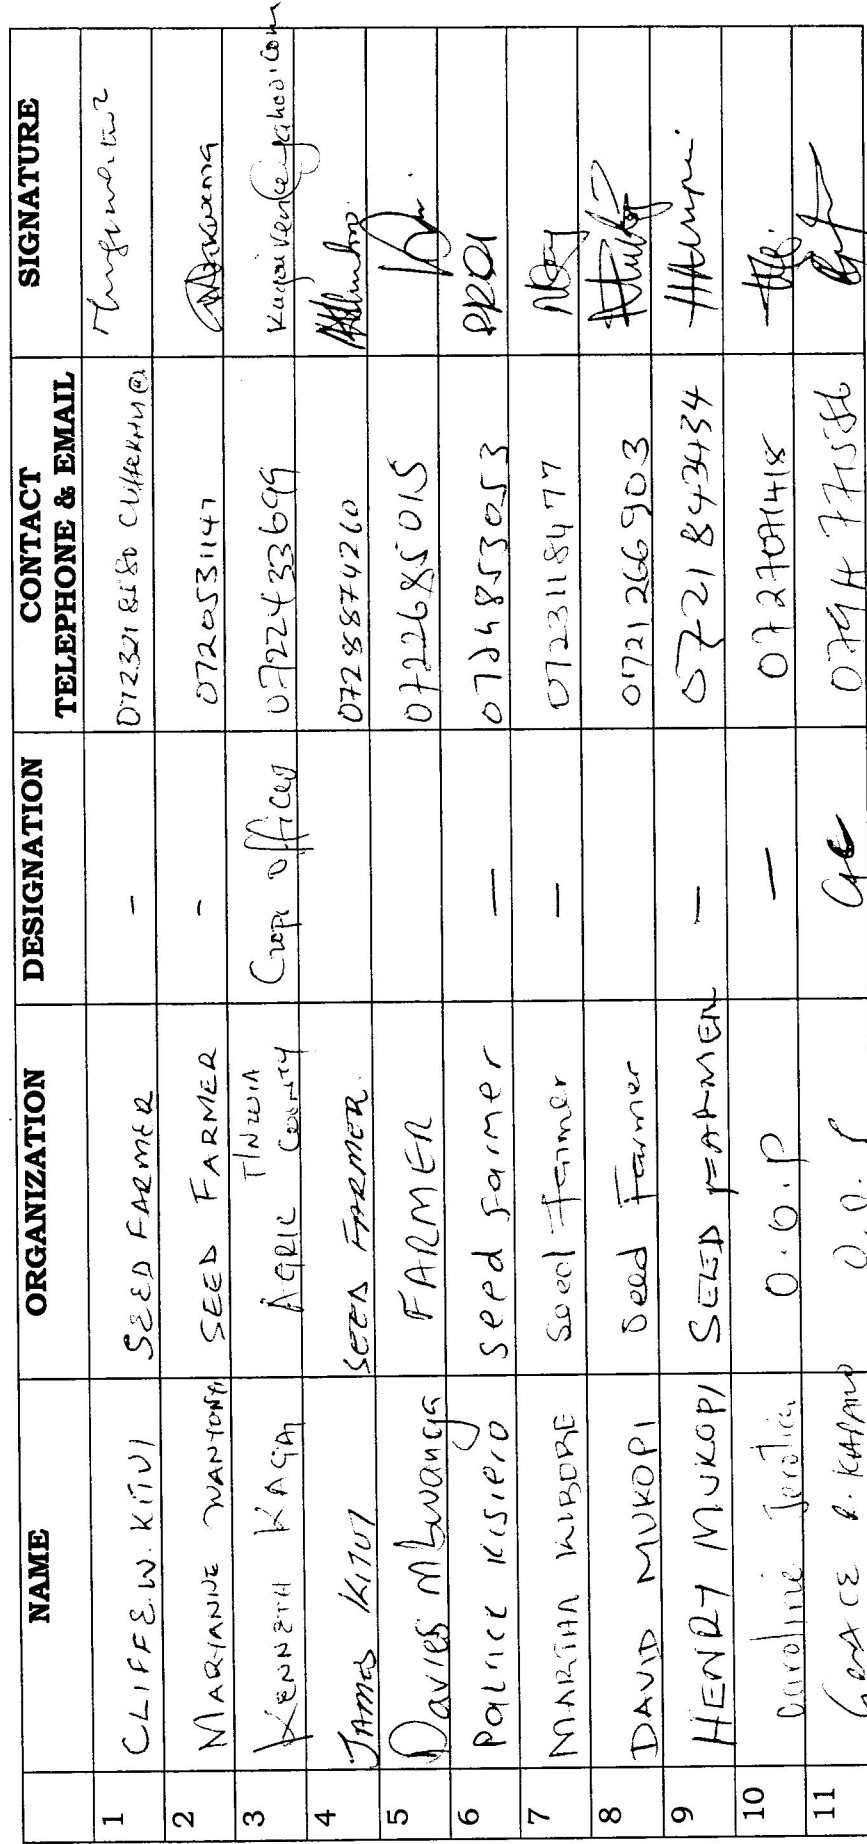 NAME ORGANIZATION DESIGNATION CONTACT TELEPHONE & EMAIL SIGNATURE
1 CLIFFE.W. KITUI SEED FARMER - CliffeKHM@
2 MARYANNE WANYONYI SEED FARMER - 0720531147
3 KENNETH KAGAI AGRIC COUNTY Crops Officer 0722433699 @yahoo.com
4 JAMES KITUI SEED FARMER 0728874260
5 Davies Mbwanga FARMER 0722685015
6 Patrice Kisiero seed farmer — 0724853053
7 MARTHA KIBORE Seed Farmer — 0723118477
8 DAVID MUKOPI Seed Farmer 0721266903
9 HENRY MUKOPI SEED FARMER — 0721843434
10 Caroline Jerotich O.O.P —
11 GRACE O.O.P